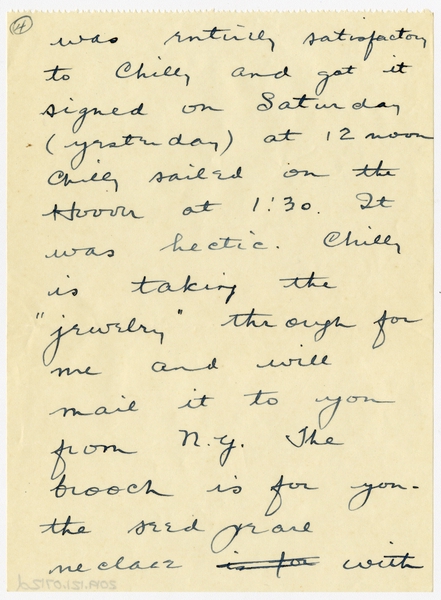 4
was entirely satisfactory
to Chilly and got it
signed on Saturday
(yesterday) at 12 noon
Chilly sailed on the
Hoover at 1:30. It
was hectic. Chilly
is taking the
"jewelry" through for
me and will
mail it to you
from N.Y. The
brooch is for you-
the seed pearl
neclace is for with
2019.121.071.2d